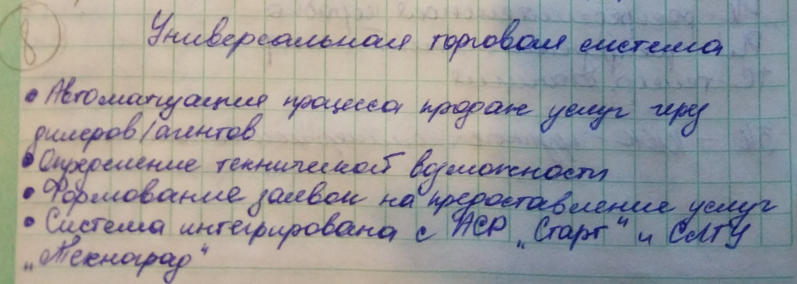 8
Универсальная торговая система
• Автоматизация процесса продаж услуг через
дилеров/агентов
• Определение технической возможности
• Формование заявок на предоставление услуг
• Система интегрирована с АСР „Старт" и СЛТУ
„Техноград"